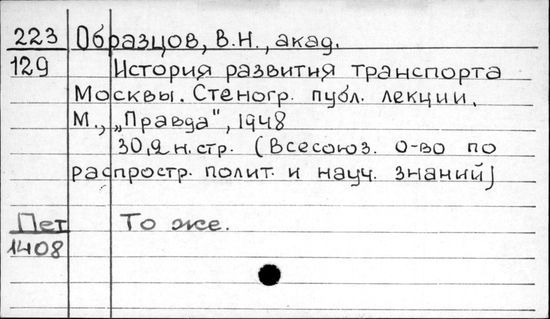 223 Образцов, В.Н., акад.
129 История развития транспорта
Москвы. Стеногр. публ. лекции.
М., „Правда", 1948
30,2 н.стр. (Всесоюз. о-во по
распростр. полит. и науч. знаний)
Пет То же.
1408